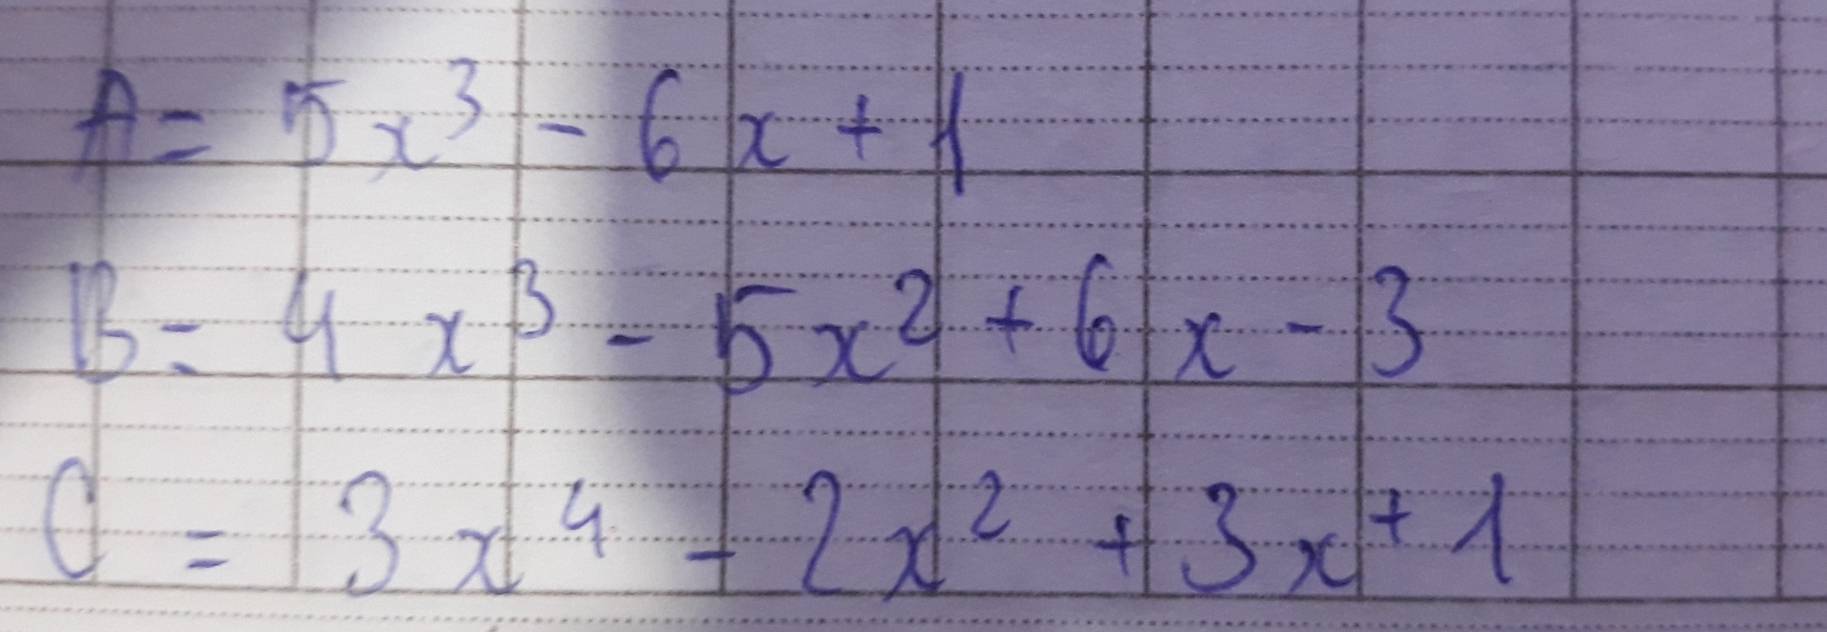 A = 5x³ - 6x + 1
B = 4x³ - 5x² + 6x - 3
C = 3x⁴ - 2x² + 3x + 1